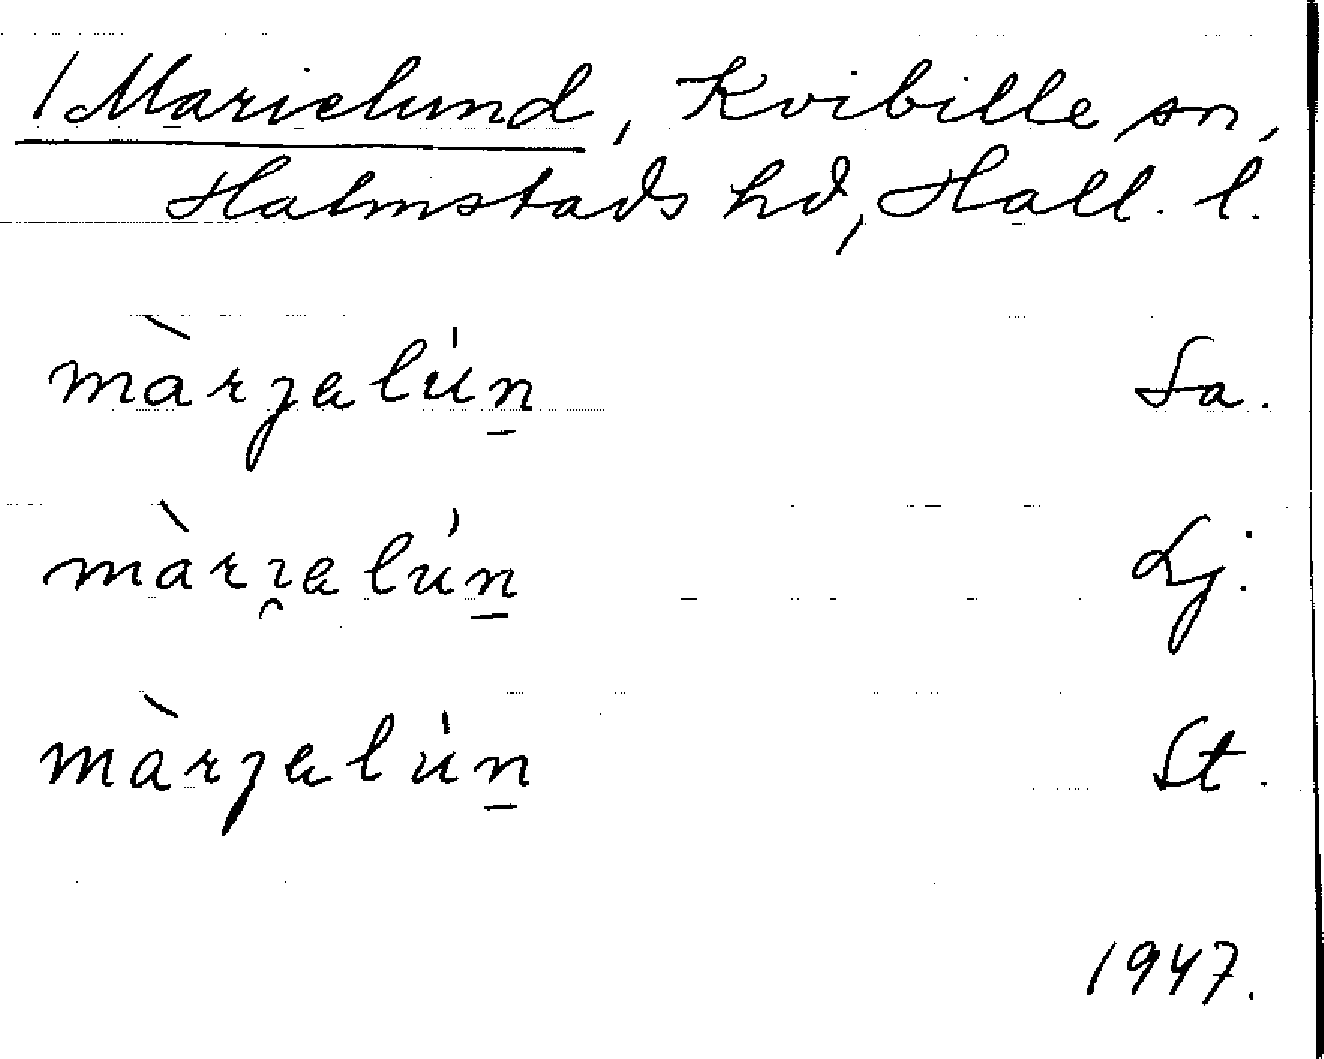 /Marielund, Kvibille sn,
Halmstads hd, Hall. l.
màrjalún̠ Sa.
màrı̯alún̠ Lj.
màrjalún̠ St.
1947.